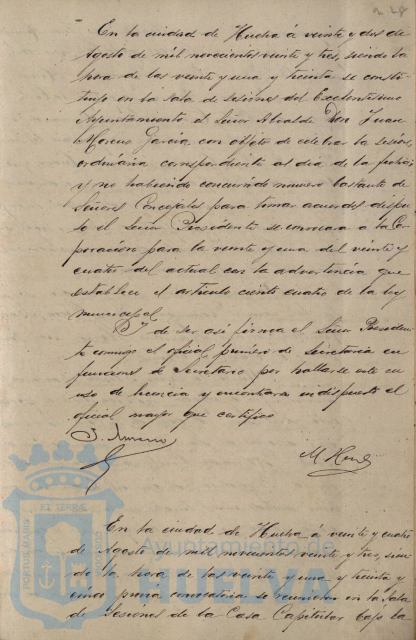 En la ciudad de Huelva á veinte y dos de
Agosto de mil novecientos veinte y tres, siendo la
hora de las veinte y una y treinta se consti-
tuyó en la sala de sesiones del Excelentísimo
Ayuntamiento el Señor Alcalde Don Juan
García con objeto de celebrar la sesión
ordinaria correspondiente al dia de la fecha;
y no habiendo concurrido número bastante de
Señores Concejales para tomar acuerdos dispu-
so el Señor Presidente se convocara a la Cor-
poración para la veinte y una del veinte y
cuatro del actual con la advertencia que
establece el artículo ciento cuatro de la ley
municipal.
Y de ser así firma el Señor Presiden-
te conmigo el oficial primero de Secretaría en
funciones de Secretario por hallarse este en
uso de licencia y encontrarse indispuesto el
oficial mayor que certifico
En la ciudad de Huelva á veinte y cuatro
de Agosto de mil novecientos veinte y tres, sien-
do la hora de las veinte y una y treinta y
cinco previa convocatoria se reunieron en la Sala
de Sesiones de la Casa Capitular bajo la
PORTUS MARIS
ET TERRAE
CUSTODIA
Ayuntamiento de
HUELVA